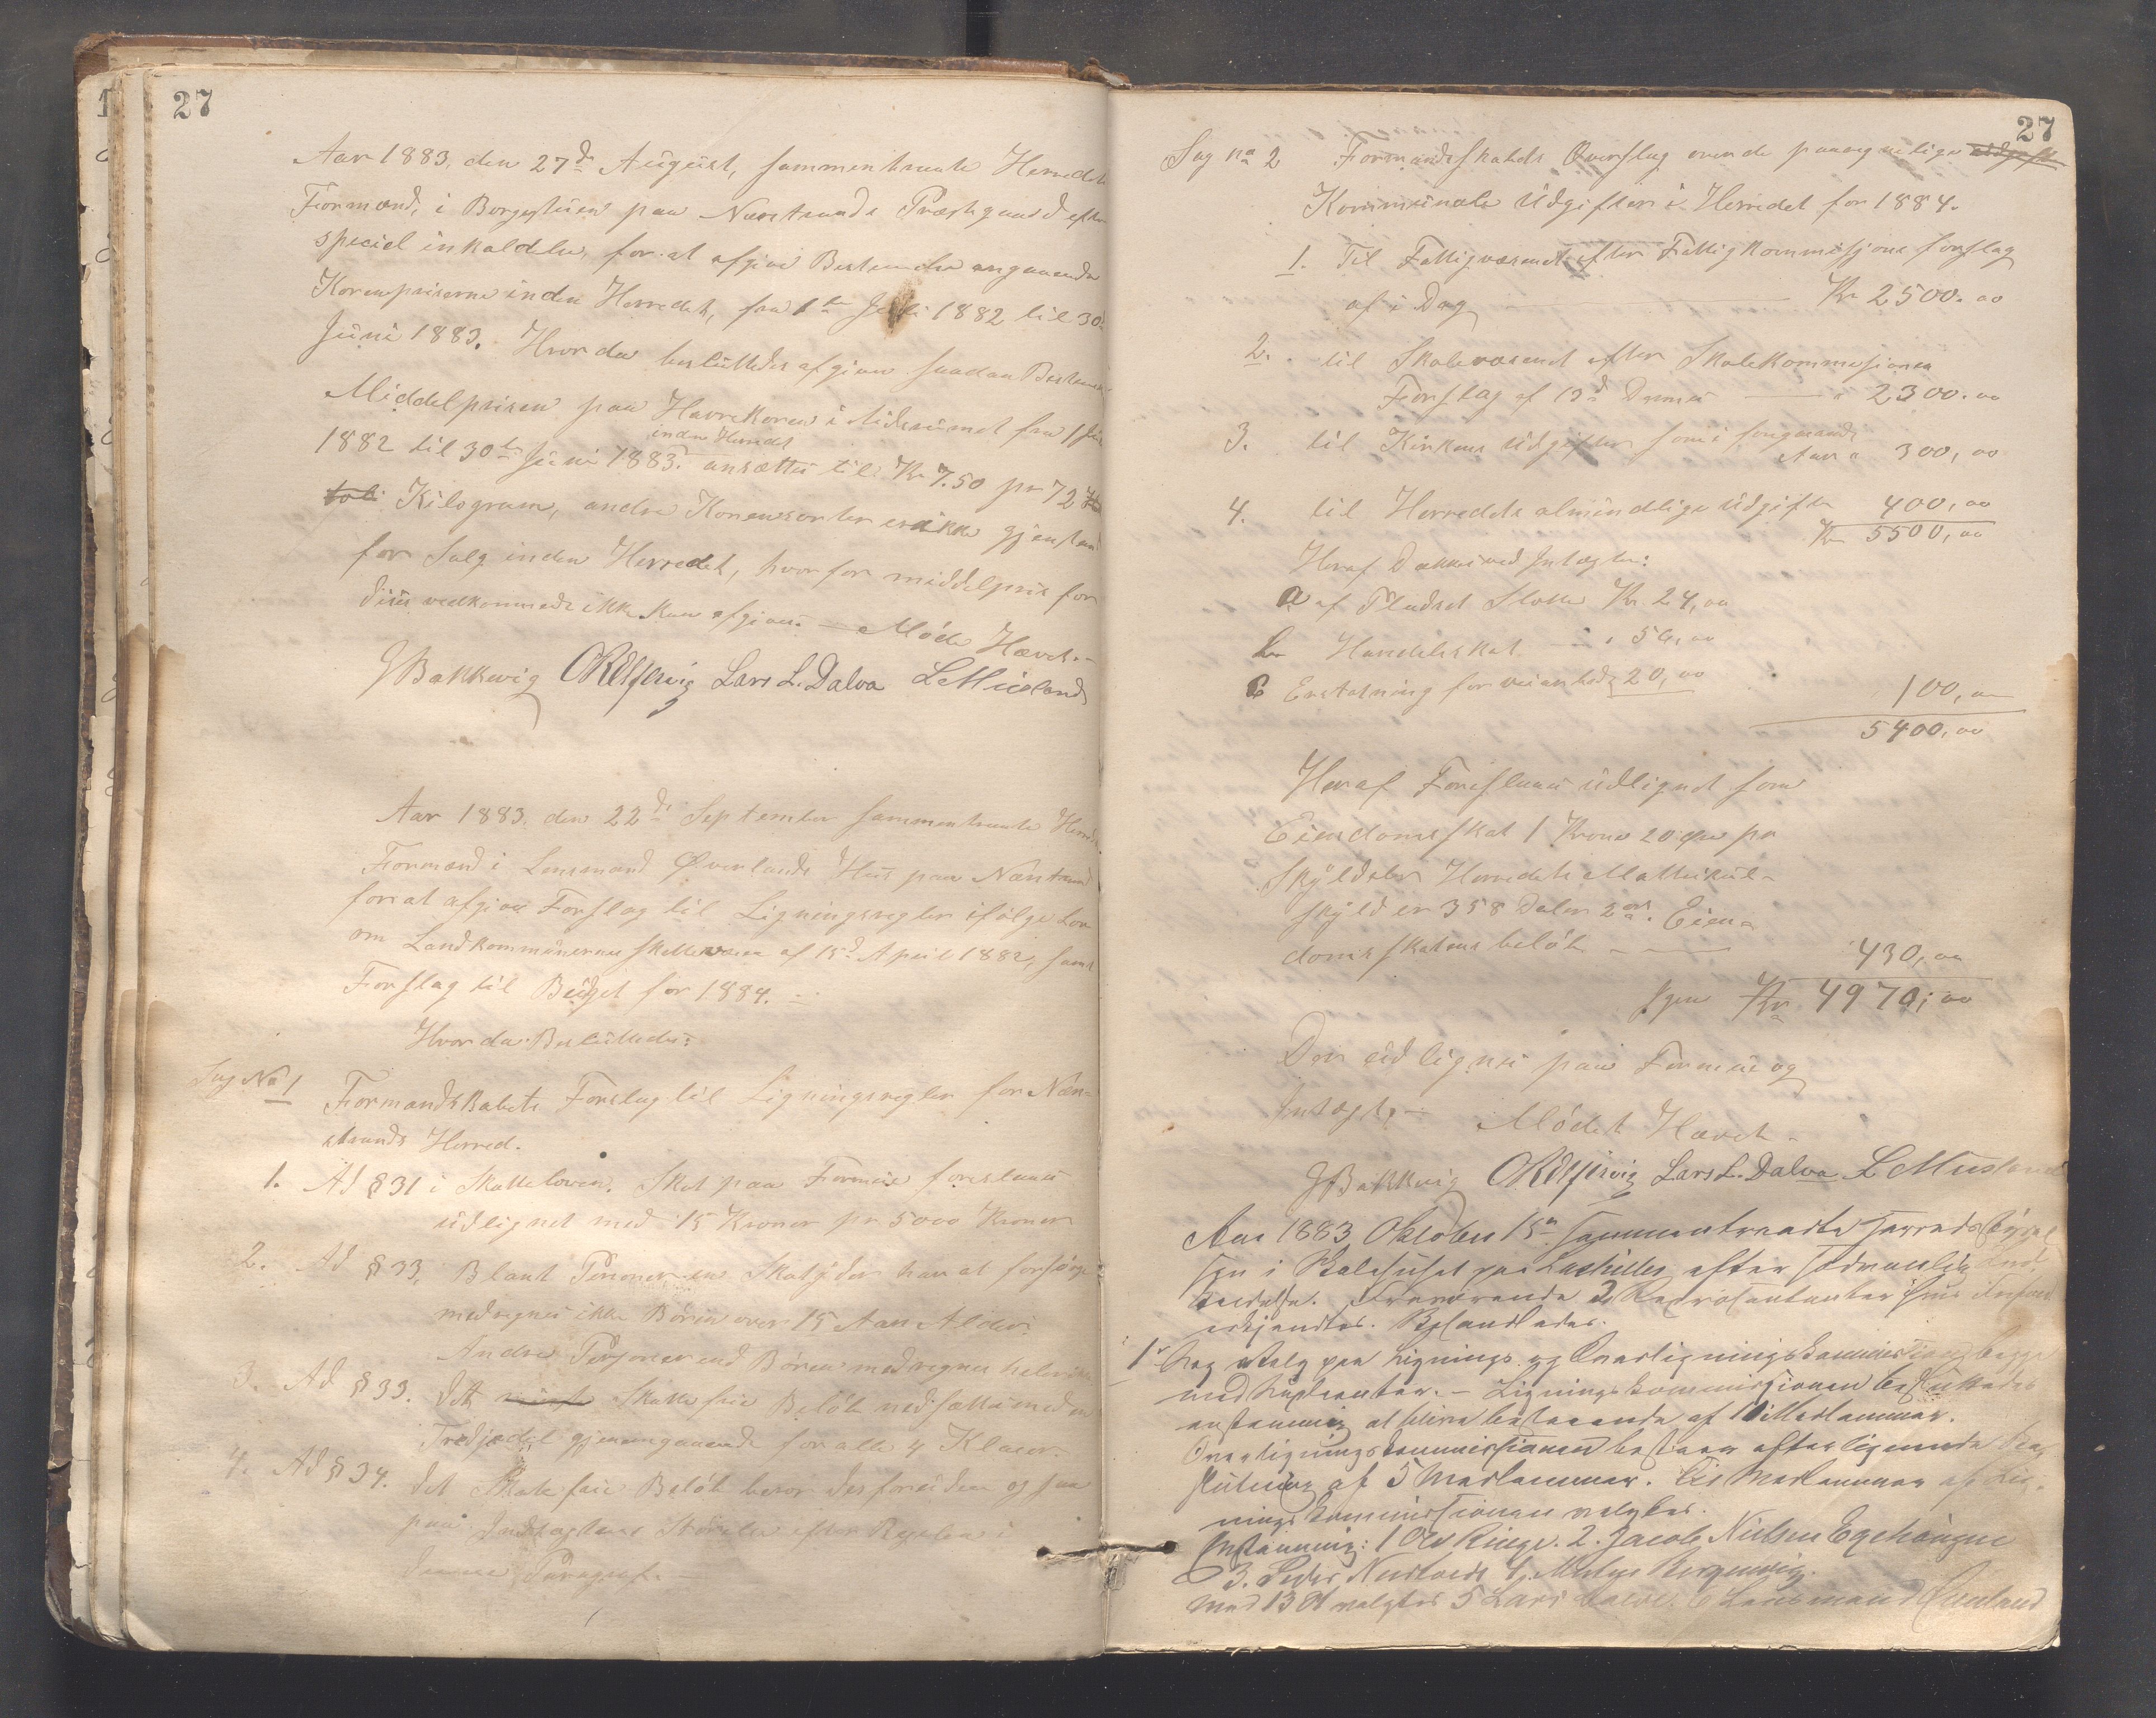 27
Aar 1883, den 27de August, sammentraate Herredets
Formænd, i Borgestuen paa Nærstrands Præstegaard efter
speciel inkaldelse, for at afgive Bestemelse angaaende
Kornpriserne inden Herredet, fra 1ste Juli 1882 til 30te
Juni 1883. Hvor da besluttedes afgiven saadan Bestemelse
Middelprisen paa Havrekoren i tidsrumet fra 1 Juli
1882 til 30te Juni 1883. inden Herredet ansættes til Kr 7.50 pr 72
Kilogram, andre Kornsorter er ikke gjenstand
for Salg inden Herredet, hvorfor middelpris for
disse vedkommende ikke kan afgives. — Møde Hævet. —
J Bakkevig O R Elfesvig Lars L. Dalva L Musland
Aar 1883, den 22de September sammentraate Herreds
Formænd i Lensmand Øverlands Hus paa Nærstrand
for at afgive Forslag til Ligningsregler ifølge Lov
om Landkommunernes Skattevæsen af 15de April 1882, samt
Forslag til Budget for 1884. —
Hvor da Besluttedes:
Sag No 1
Formandskabets Forslag til Ligningsregler for Nær-
strands Herred.
1. Ad § 31 i Skatteloven. Skat paa Formue foreslaaes
udlignet med 15 Kroner pr 5000 Kroner
2. Ad § 33, Blant Personer en Skatyder har at forsørge
medregnes ikke Børn over 15 Aars Alder.
Andre Personer end Børn medregnes
3. Ad § 33. Det Skattefrie Beløb nedsættes med en
Trediedel gjennemgaaende for alle 4 Klasser.
4. Ad § 34. Det Skatefrie Beløb beror desforuden ogsaa
paa Indtægtens Størrelse efter Regelen i
denne Paragraf. —
27
Sag no 2 Formandsskabets Overslag over de paaregnelige udgifte
Kommunale Udgifter i Herredet for 1884.
1. Til Fattigvæsenet efter Fattigkommisjons forslag
af i Dag — Kr 2500.00
2. til Skolevæsenet efter Skolekommisjonen
Forslag af 19d Dennes — " 2300.00
3. til Kirkens Udgifter som i forgaaende
Aar " 300,00
4. til Herredets almindelige udgifter 400,00
Kr 5500,00
Heraf Dækkes ved Intægter:
a af Pladset Slotte Kr. 24,00
b Handelskat — " 56,00
c Erstatning for veiarbeide 20,00
100,00
5400,00
Heraf Foreslaaes udlignet som
Eiendomsskat 1 Krone 20 Øre pr
Skylddaler Herredets Mattrikul-
skyld er 358 Daler 2 ort. Eien-
domsskatens beløb — 430,00
Igjen Kr. 4970,00
Der udlignes paa Formue og
Intægt. — Mødet Hævet —
J Bakkevig O R Elfesvig Lars L. Dalva L Musland
Aar 1883 Oktober 15de sammentraadte Herredsstyrel
sen i Skolehuset paa efter sædvanlig Ind-
kaldelse. Fraværende 2 Repræsentanter hvis Forfald
erkjendtes. Behandledes:
1ste Sag Valg paa Lignings og Overligningskommission begge
med Suppleanter. — Ligningskommissionen besluttedes
enstemmig at blive bestaaende af 10 Medlemmer.
Overligningskommissionen bestaar efter lignende Be-
slutning af 5 Medlemmer. Til Medlemmer af Lig-
ningskommissionen valgtes.
Enstemmig: 1 Ole Ringe. 2. Jacob Nielsen Egehaugne
3. Peder Neerbarde 4. Mikkel Borgenvig.
Med 13 St valgtes 5 Lars Dalve. 6 Lensmand Øverland